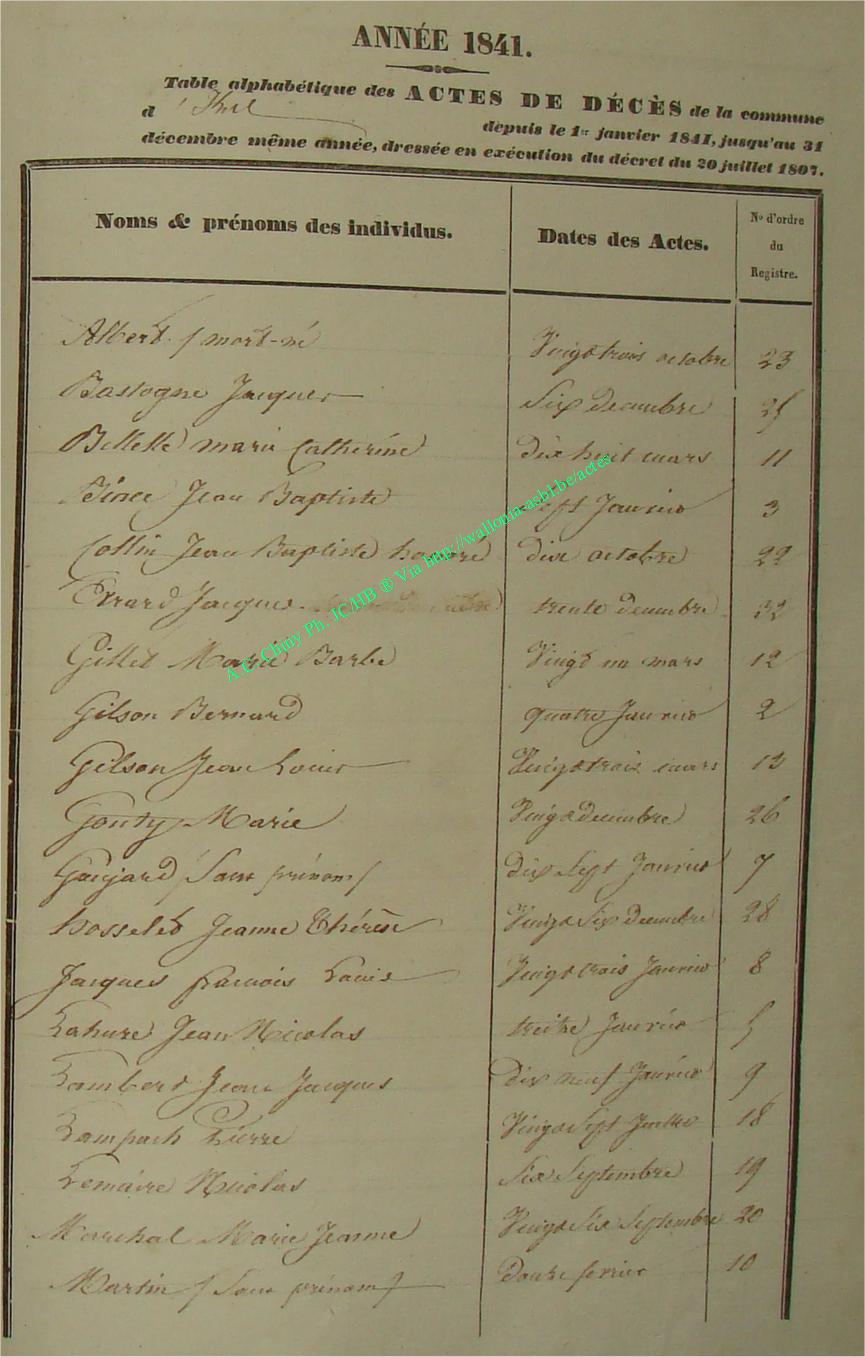 ANNÉE 1841.
Table alphabétique des ACTES DE DÉCÈS de la commune
d
depuis le 1er janvier 1841, jusqu'au 31
décembre même année, dressée en exécution du décret du 20 juillet 1807.
Noms & prénoms des individus. Dates des Actes. No d'ordre du Registre.
Albert / mort-né Vingt trois octobre 23
Bastogne Jacques six decembre 25
marie Catherine dix huit mars 11
Jean Baptiste sept Janvier 3
Collin Jean Baptiste honoré dix octobre 22
Errard Jacques trente decembre
Gillet Marie Barbe Vingt un mars 12
Gilson Bernard quatre Janvier 2
Gilson Jean Louis Vingt trois mars 13
Gouty Marie Vingt decembre 26
Goujard / Sans prénom / dix sept Janvier 7
hosselet Jeanne Thérèse Vingt Six decembre 28
Jacques francois Louis Vingt trois Janvier 8
Lahure Jean Nicolas treize Janvier 5
Lambert Jean Jacques dix neuf Janvier 9
Lampach Pierre Vingt Sept Juillet 18
Lemaire Nicolas Six Septembre 19
Marchal Marie Jeanne Vingt Six Septembre 20
Martin / Sans prénom / Douze fevrier 10
A.G. Chiny Ph. JC/HB ® Via http://wallonia-asbl.be/actes